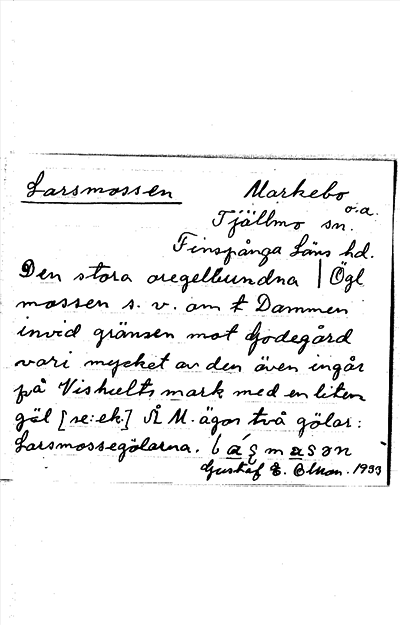 Larsmossen Markebo
o.a.
Tjällmo sn.
Finspånga Läns hd.
Den stora oregelbundna | Ögl
mossen s. v. om Dammen
invid gränsen mot Godegård
vari mycket av den även ingår
på Viskults mark med en liten
göl [se: ek.] Å M. ägor två gölar:
Larsmossegölarna.
Gustaf E. 1933